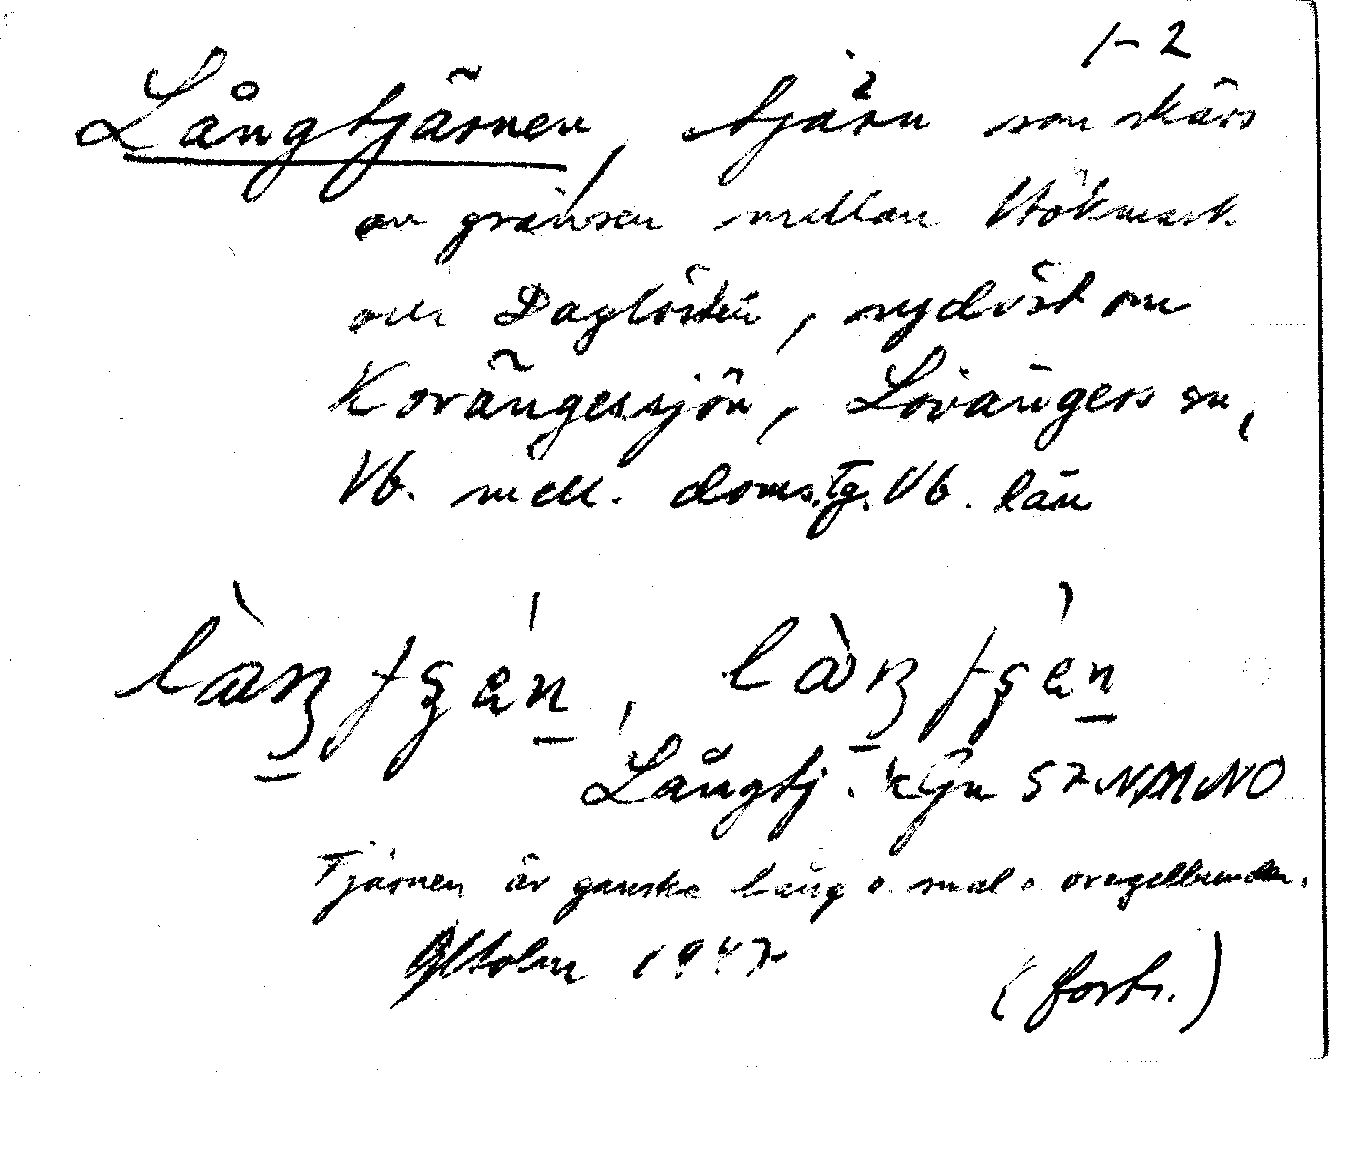 1-2
Långtjärnen, tjärn som skärs
av gränsen mellan Hökmark
och Daglösten, sydväst om
Korängessjön, Lövångers sn,
Vb. mell. doms.tg. Vb. län
Långtj. kGn 57 NMNO
Tjärnen är ganska lång o. smal o oregelbunden.
GHolm 1947
(forts.)